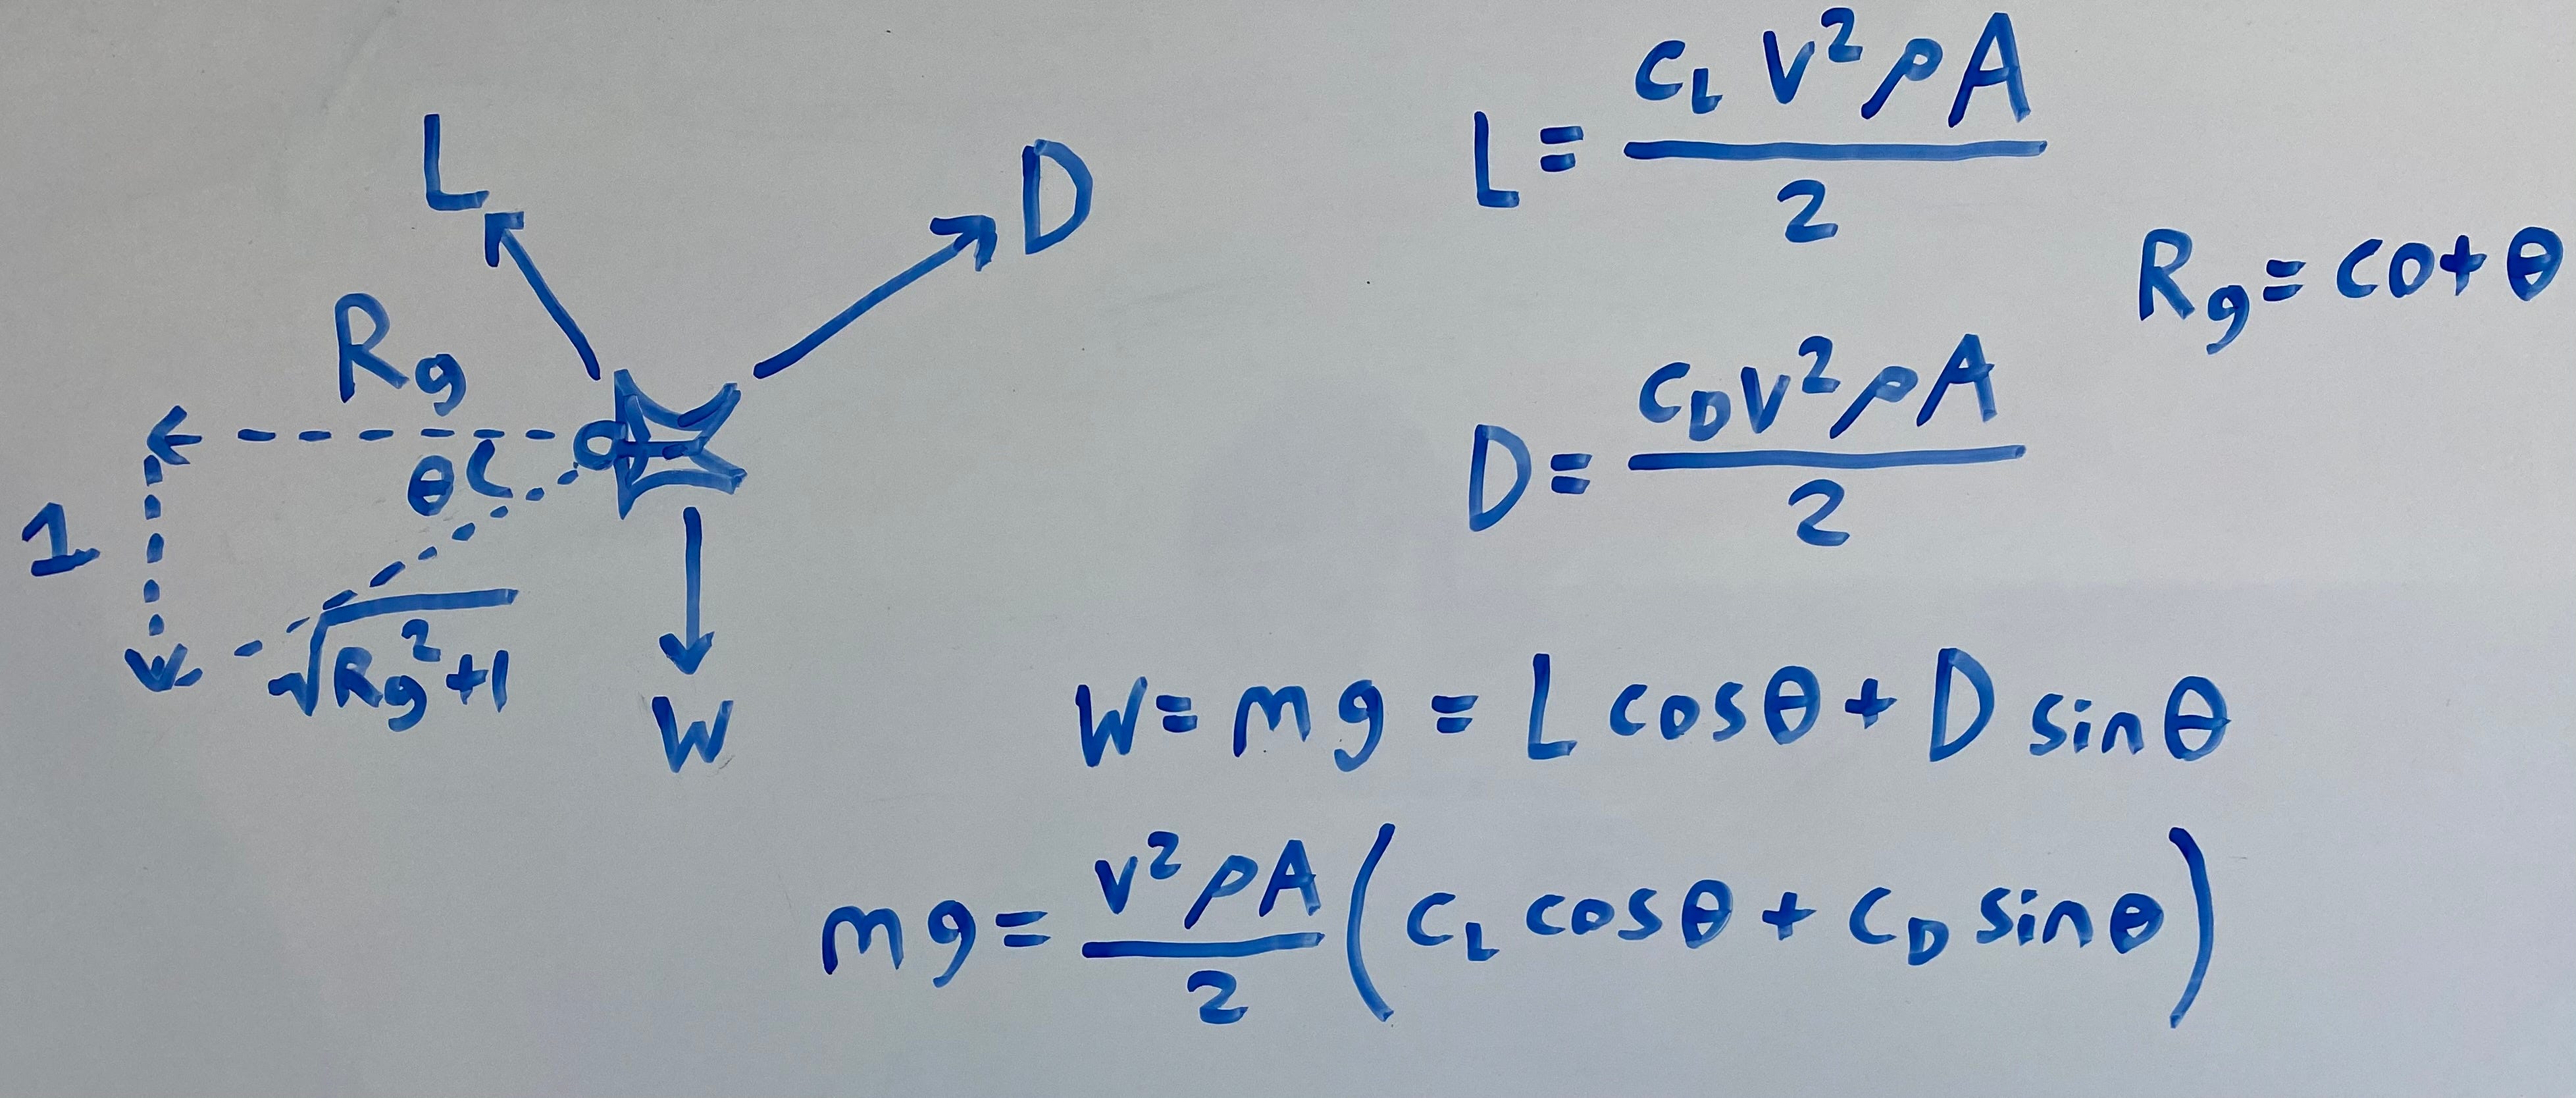 L
D
R_g
θ
1
√(R_g²+1)
W
L = (C_L V² ρ A) / 2
R_g = cot θ
D = (C_D V² ρ A) / 2
W = mg = L cosθ + D sinθ
mg = (V² ρ A) / 2 (C_L cosθ + C_D sinθ)